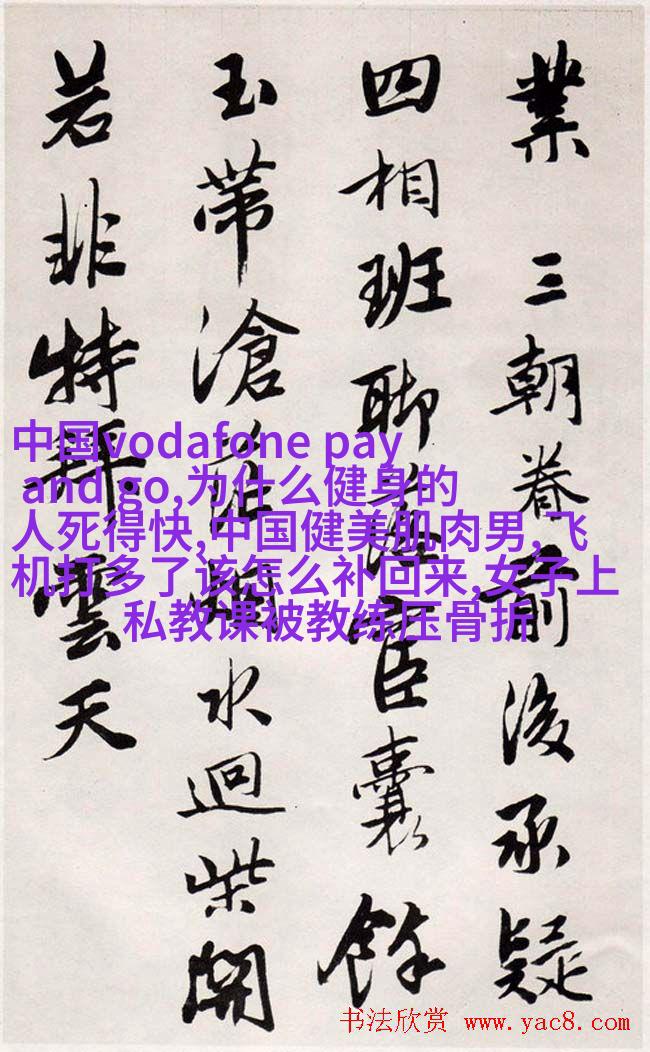 業 三朝眷前後承疑
四相班聊

宦囊餘
玉帶滄
水迴柴開
若非特拜雲天
中国vodafone pay
and go,为什么健身的
人死得快,中国健美肌肉男,飞
机打多了该怎么补回来,女子上
私教课被教练压骨折
书法欣赏 www.yac8.com